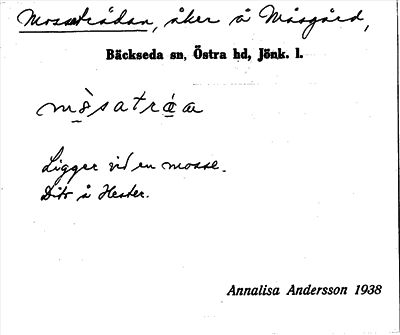 Mossaträdan, åker å Måsgård,
Bäckseda sn, Östra hd, Jönk. l.
mòsatráa
Ligger vid en mosse.
Dito å Hester.
Annalisa Andersson 1938